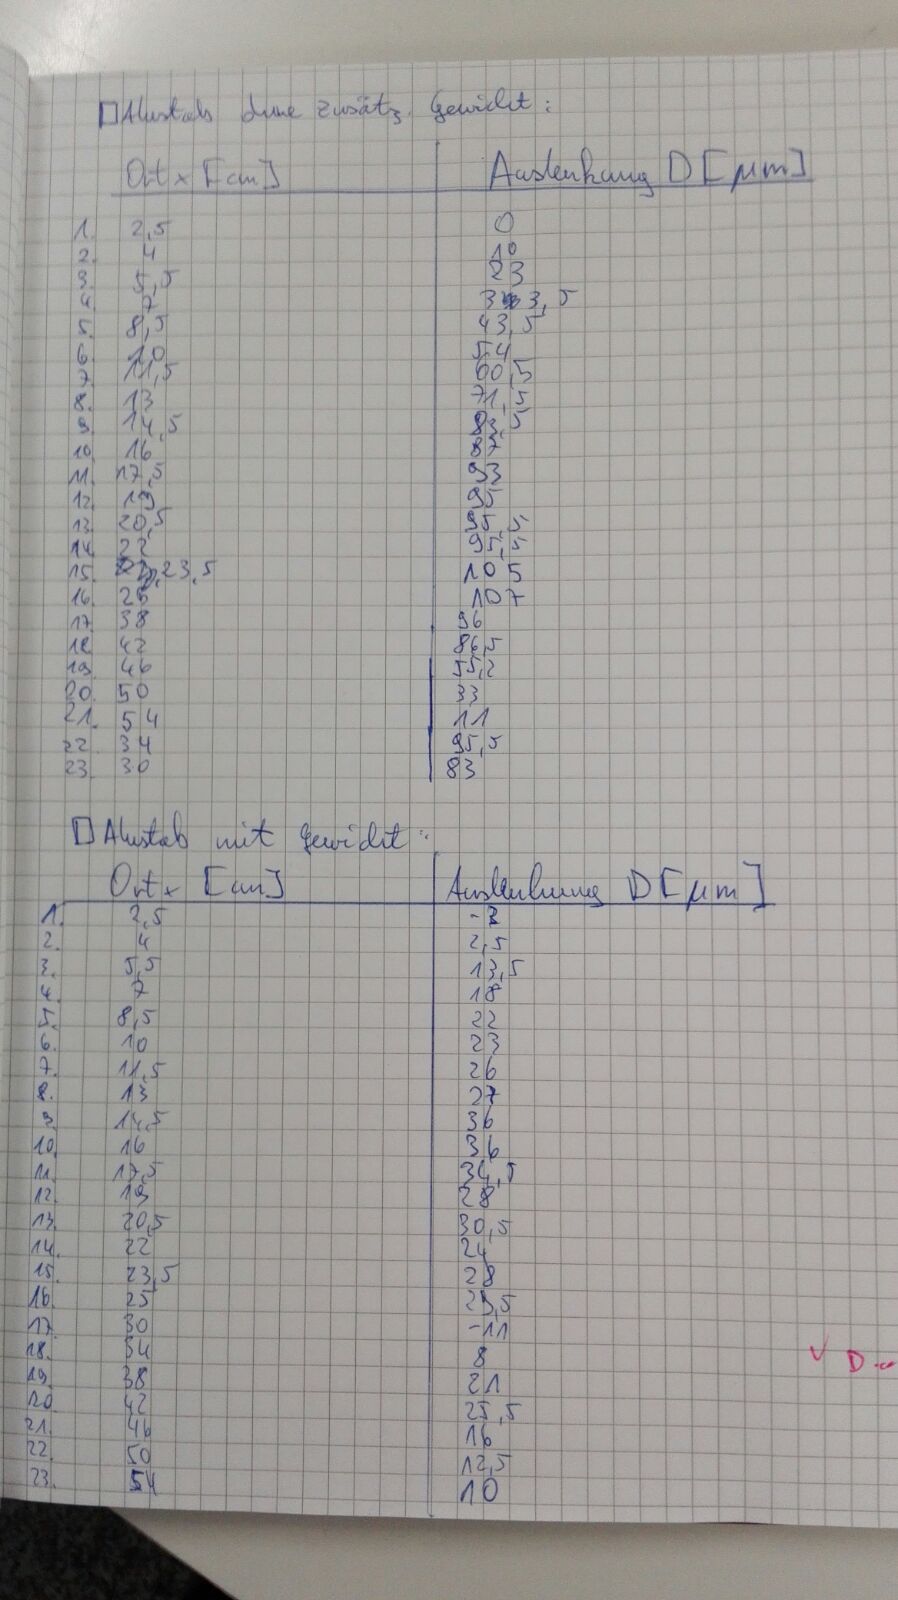 Alustab ohne zusätz. Gewicht:
Ort x [cm] Auslenkung D [µm]
1. 2,5 0
2. 4 10
3. 5,5 23
4. 7 33,5
5. 8,5 43,5
6. 10 54
7. 11,5 60,5
8. 13 71,5
9. 14,5 83,5
10. 16 87
11. 17,5 93
12. 19 95
13. 20,5 95,5
14. 22 95,5
15. 23,5 105
16. 25 107
17. 38 96
18. 42 86,5
19. 46 55,2
20. 50 33
21. 54 11
22. 34 95,5
23. 30 83
Alustab mit Gewicht:
Ort x [cm] Auslenkung D [µm]
1. 2,5
2. 4 2,5
3. 5,5 13,5
4. 7 18
5. 8,5 22
6. 10 23
7. 11,5 26
8. 13 27
9. 14,5 36
10. 16 36
11. 17,5 34,5
12. 19 28
13. 20,5 30,5
14. 22 24
15. 23,5 28
16. 25
17. 30 -11
18. 34 8
19. 38 21
20. 42 25,5
21. 46 16
22. 50 12,5
23. 54 10
D